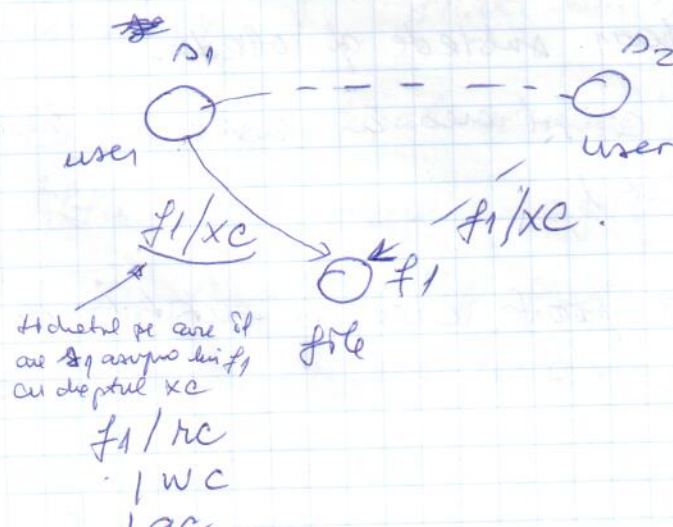 s1
s2
user
user
f1/xc
f1/xc.
f1
file
tichetul pe care îl
are s1 asupra lui f1
cu dreptul xc
f1/rc
/wc
/ac